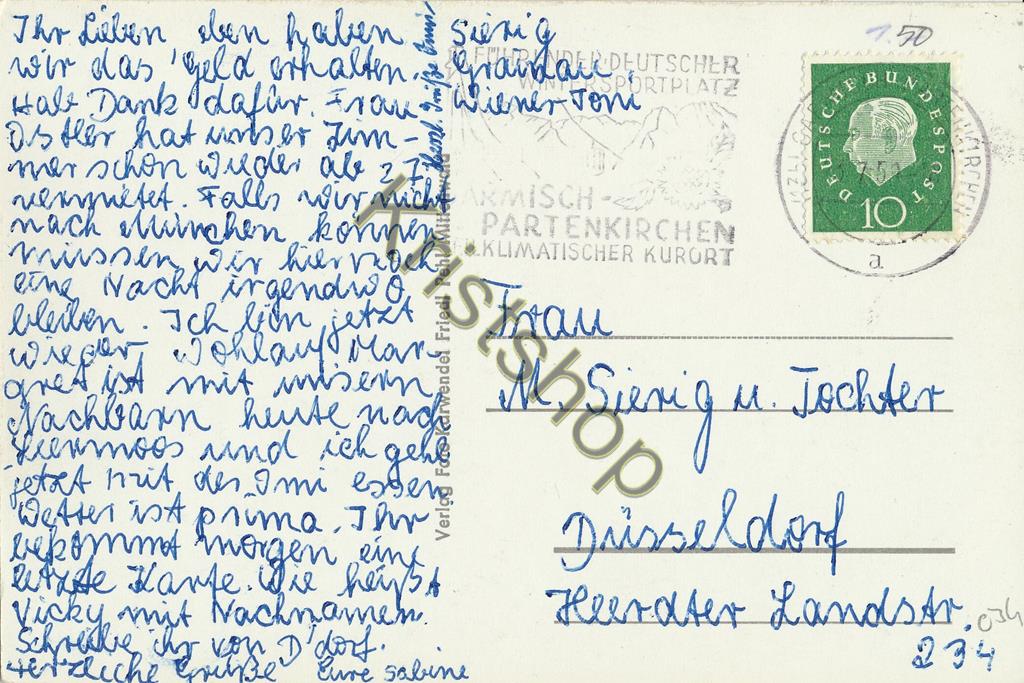 Ihr Lieben den haben
wir das Geld erhalten.
Hab Dank dafür. Frau
Ostler hat unser Zim-
mer schon wieder ab 27.
vermietet. Falls wir nicht
nach München können
müssen wir hier noch
eine Nacht irgendwo
bleiben. Ich bin jetzt
wieder wohlauf. Mar-
gret ist mit unsern
Nachbarn heute nach
Leermoos und ich geh
jetzt mit der Omi essen.
Wetter ist prima. Ihr
bekommt morgen eine
letzte Karte. Wie heißt
Vicky mit Nachnamen.
Schreibe ihr von D'dorf.
Herzliche Grüße Eure Sabine
Sierig
Grainau
Wiener-Toni
Verlag Foto-Karwendel Friedl
FÜHRENDER DEUTSCHER
WINTERSPORTPLATZ
GARMISCH-
PARTENKIRCHEN
KLIMATISCHER KURORT
1.50
DEUTSCHE BUNDESPOST
10
a
Frau
M. Sierig u. Tochter
Düsseldorf
Heerdter Landstr.
234
034
Kristshop